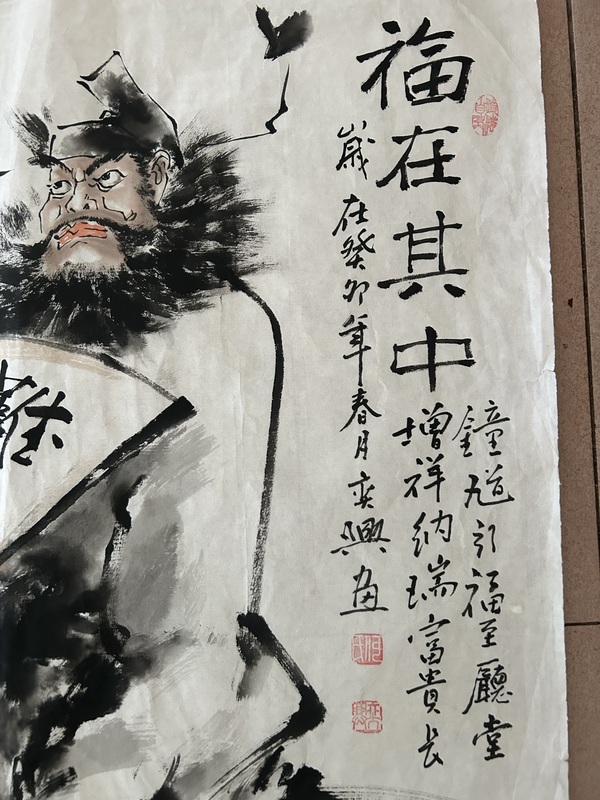 福在其中
鐘馗引福至廳堂
增祥納瑞富貴長
歲在癸卯年春月奕興画